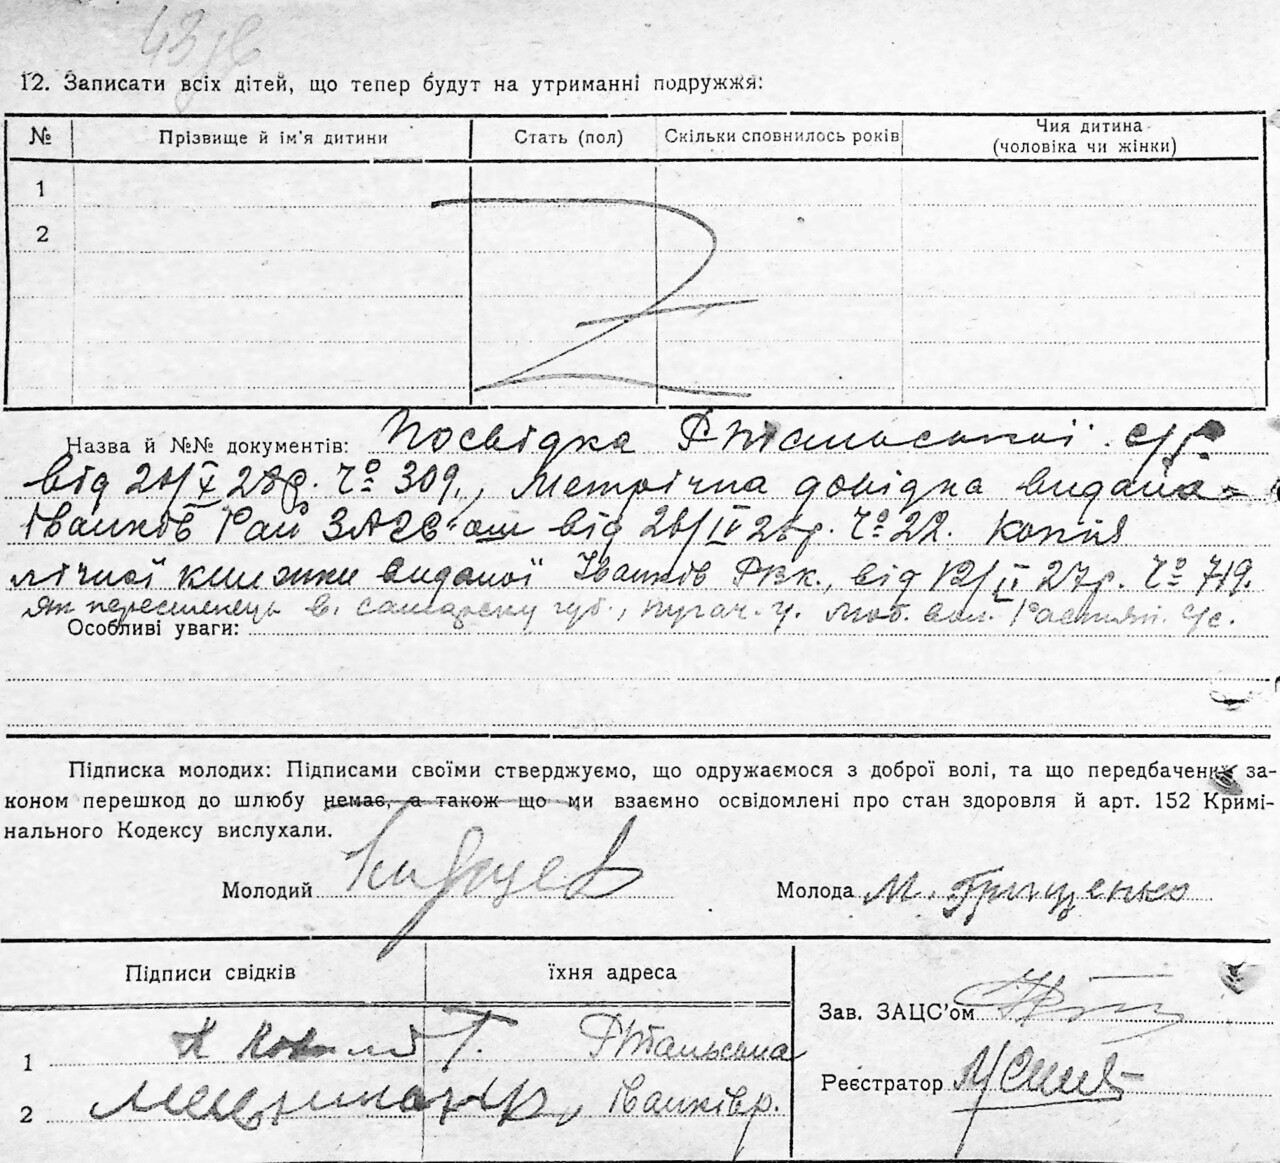 12. Записати всіх дітей, що тепер будут на утриманні подружжя:
№ Прізвище й ім'я дитини Стать (пол) Скільки сповнилось років Чия дитина (чоловіка чи жінки)
1
2
Назва й №№ документів: Посвідка с/р.
від 28р. Ч° 309., Метрічна довідка видана
Іванків Рай ЗАГС від IV Ч° 22. Копія
лічної книжки виданої Іванків РВК., від 12/II 27р. Ч° 719.
як переселенець в. самарську губ., пугач. у. люб. вол. с/с.
Особливі уваги:
Підписка молодих: Підписами своїми стверджуємо, що одружаємося з доброї волі, та що передбачених за-
коном перешкод до шлюбу немає, а також що ми взаємно освідомлені про стан здоров'я й арт. 152 Кримі-
нального Кодексу вислухали.
Молодий Молода М. Грищенко
Підписи свідків їхня адреса
Зав. ЗАЦС'ом
1
Реєстратор
2 Іванків р.